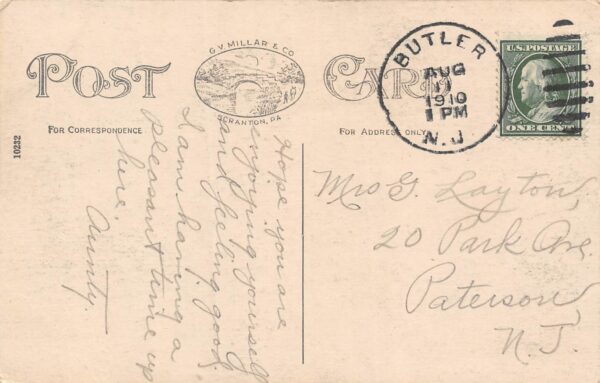 POST CARD
G.V. MILLAR & CO
SCRANTON, PA
FOR CORRESPONDENCE
FOR ADDRESS ONLY
10232
BUTLER
AUG
1910
PM
N.J.
U.S. POSTAGE
ONE CENT
Hope you are
enjoying yourself
and feeling good,
I am having a
pleasant time up
here.
Aunty.
Mrs G. Layton,
20 Park Ave.
Paterson,
N.J.